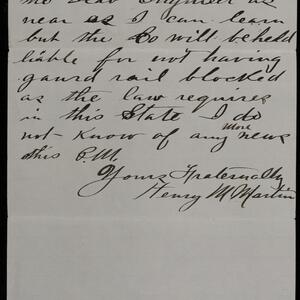 the dead Engineer as
near as I can learn
but the Co will be held
liable for not having
gaurd rail blocked
as the law requires
in this State I do
not know of any more news
this P.M.
Yours Fraternally
Henry M Martin